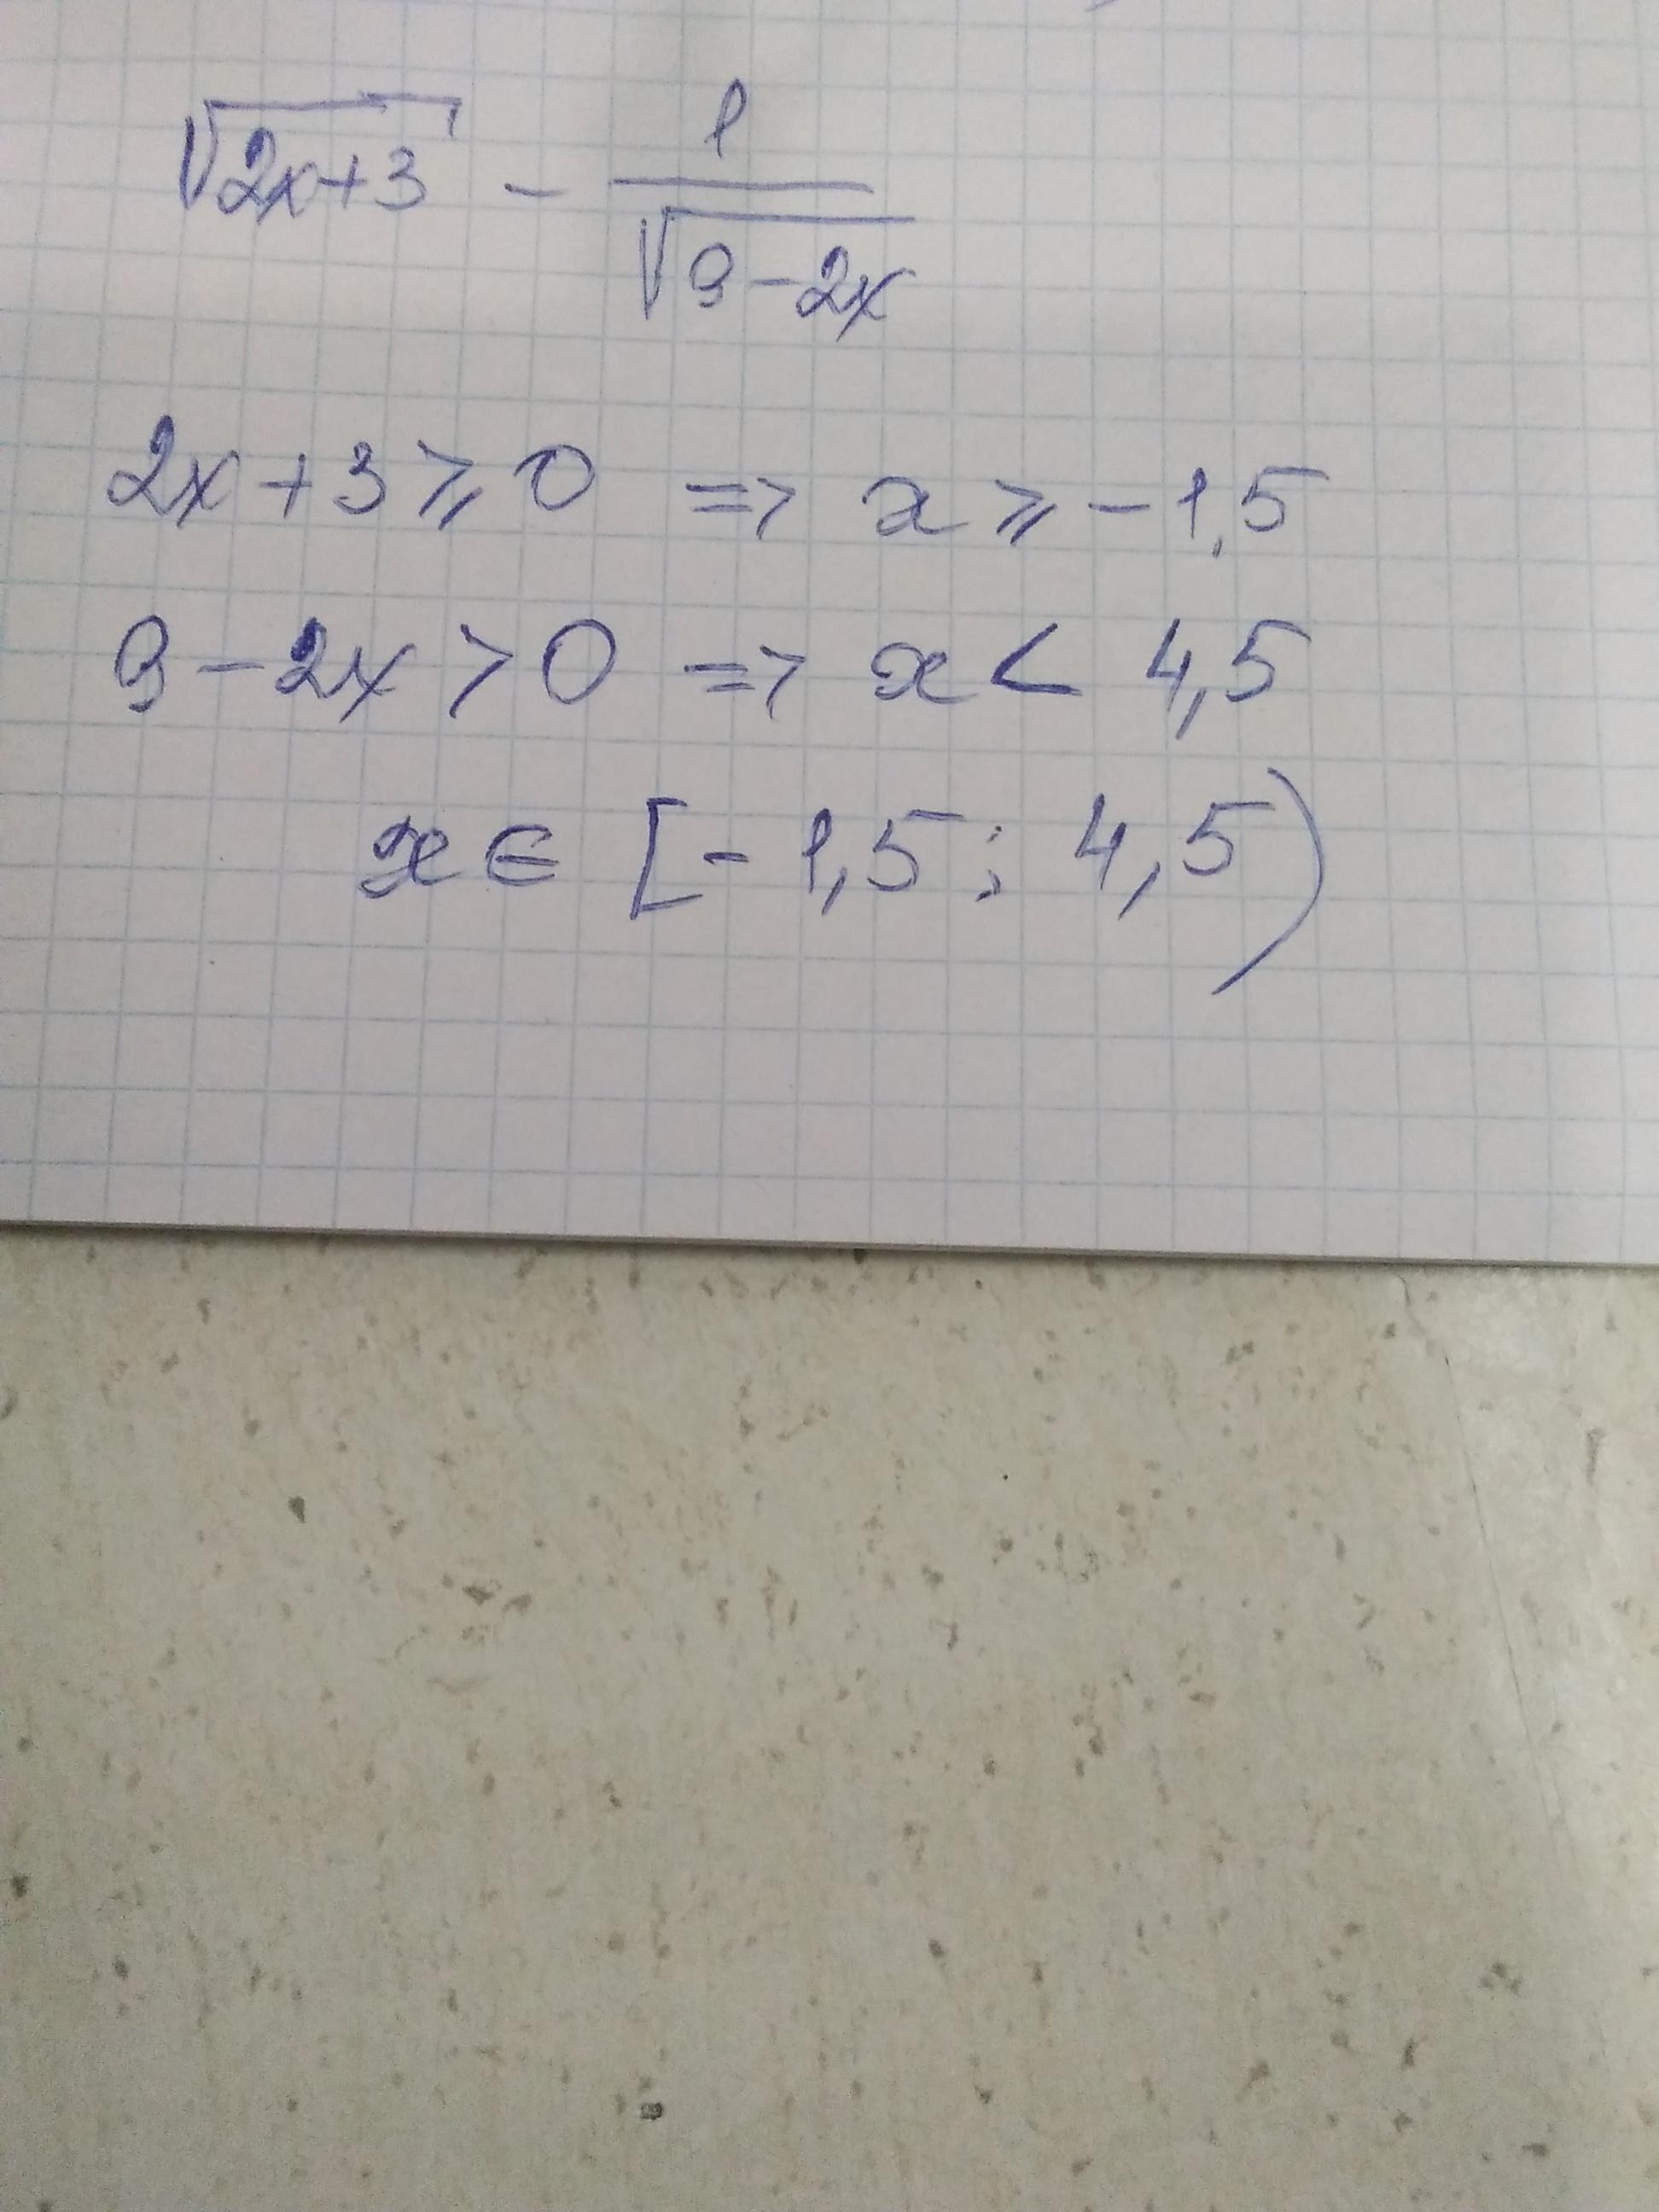 √(2x+3) - 1/√(9-2x)
2x+3⩾0 => x⩾-1,5
9-2x>0 => x< 4,5
x∈ [-1,5; 4,5)